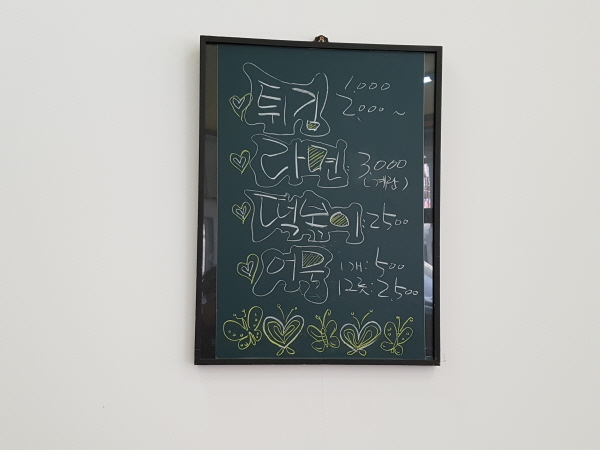 튀김 1,000
2,000~
라면: 3,000
(계란)
떡볶이: 2500
어묵 1개: 500
1그릇: 2,500